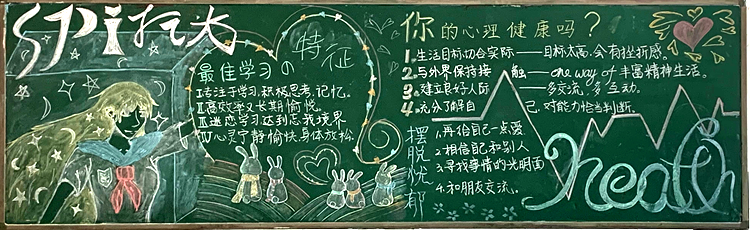 SPi扩大
最佳学习の特征
I专注于学习.积极思考.记忆.
II高效率又长期愉悦.
III迷恋学习达到忘我境界
IV心灵宁静愉快身体放松
你的心理健康吗？
1.生活目标切合实际——目标太高.会有挫折感。
2.与外界保持接触——one way of 丰富精神生活。
3.建立良好人际——多交流,多互动.
4.充分了解自己.对能力恰当判断.
摆脱忧郁
1.再给自己一点爱
2.相信自己和别人
3.寻找事情的光明面
4.和朋友交流.
health